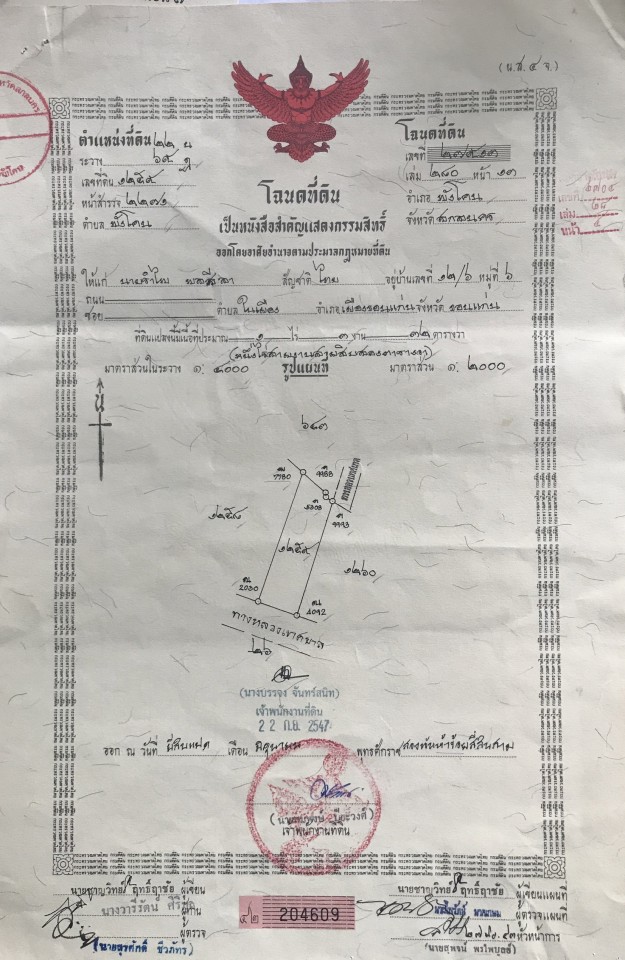 (น.ส. ๔ จ.)
ตำแหน่งที่ดิน
ระวาง
เลขที่ดิน ๑๒๕๙
หน้าสำรวจ ๒๒๗๑
ตำบล พังโคน
โฉนดที่ดิน
เลขที่
เล่ม ๒๘๐ หน้า ๑๓
อำเภอ พังโคน
จังหวัด สกลนคร
โฉนดที่ดิน
เป็นหนังสือสำคัญแสดงกรรมสิทธิ์
ออกโดยอาศัยอำนาจตามประมวลกฎหมายที่ดิน
ให้แก่ สัญชาติ ไทย อยู่บ้านเลขที่ ๑๒/๖ หมู่ที่ ๖
ถนน
ซอย ตำบล ในเมือง อำเภอ เมืองขอนแก่น จังหวัด ขอนแก่น
ที่ดินแปลงนี้มีเนื้อที่ประมาณ ๑ ไร่ ๓ งาน ๓๒ ตารางวา
(หนึ่งไร่สามงานสามสิบสองตารางวา)
มาตราส่วนในระวาง ๑: ๔๐๐๐ รูปแผนที่ มาตราส่วน ๑: ๒๐๐๐
น
๖๔๓
7780
4988
5308
9993
๑๒๕๘
๑๒๕๙
๑๒๖๐
2030
4092
ทางหลวงเทศบาล
๒๖
(นางบรรจง จันทร์สนิท)
เจ้าพนักงานที่ดิน
22 ก.ย. 2547
ออก ณ วันที่ ยี่สิบแปด เดือน มิถุนายน พุทธศักราช สองพันห้าร้อยสี่สิบสาม
เจ้าพนักงานที่ดิน
นายชาญวิทย์ ฤทธิ์ฤาชัย ผู้เขียน
นางวารีรัตน์ ศิริ ผู้ทาน
ผู้ตรวจ
(นายสุรศักดิ์ ชีวภัทร์)
204609
นายชาญวิทย์ ฤทธิ์ฤาชัย ผู้เขียนแผนที่
ผู้ตรวจแผนที่
หัวหน้าการ
(นายสุพจน์ พรไพบูลย์)